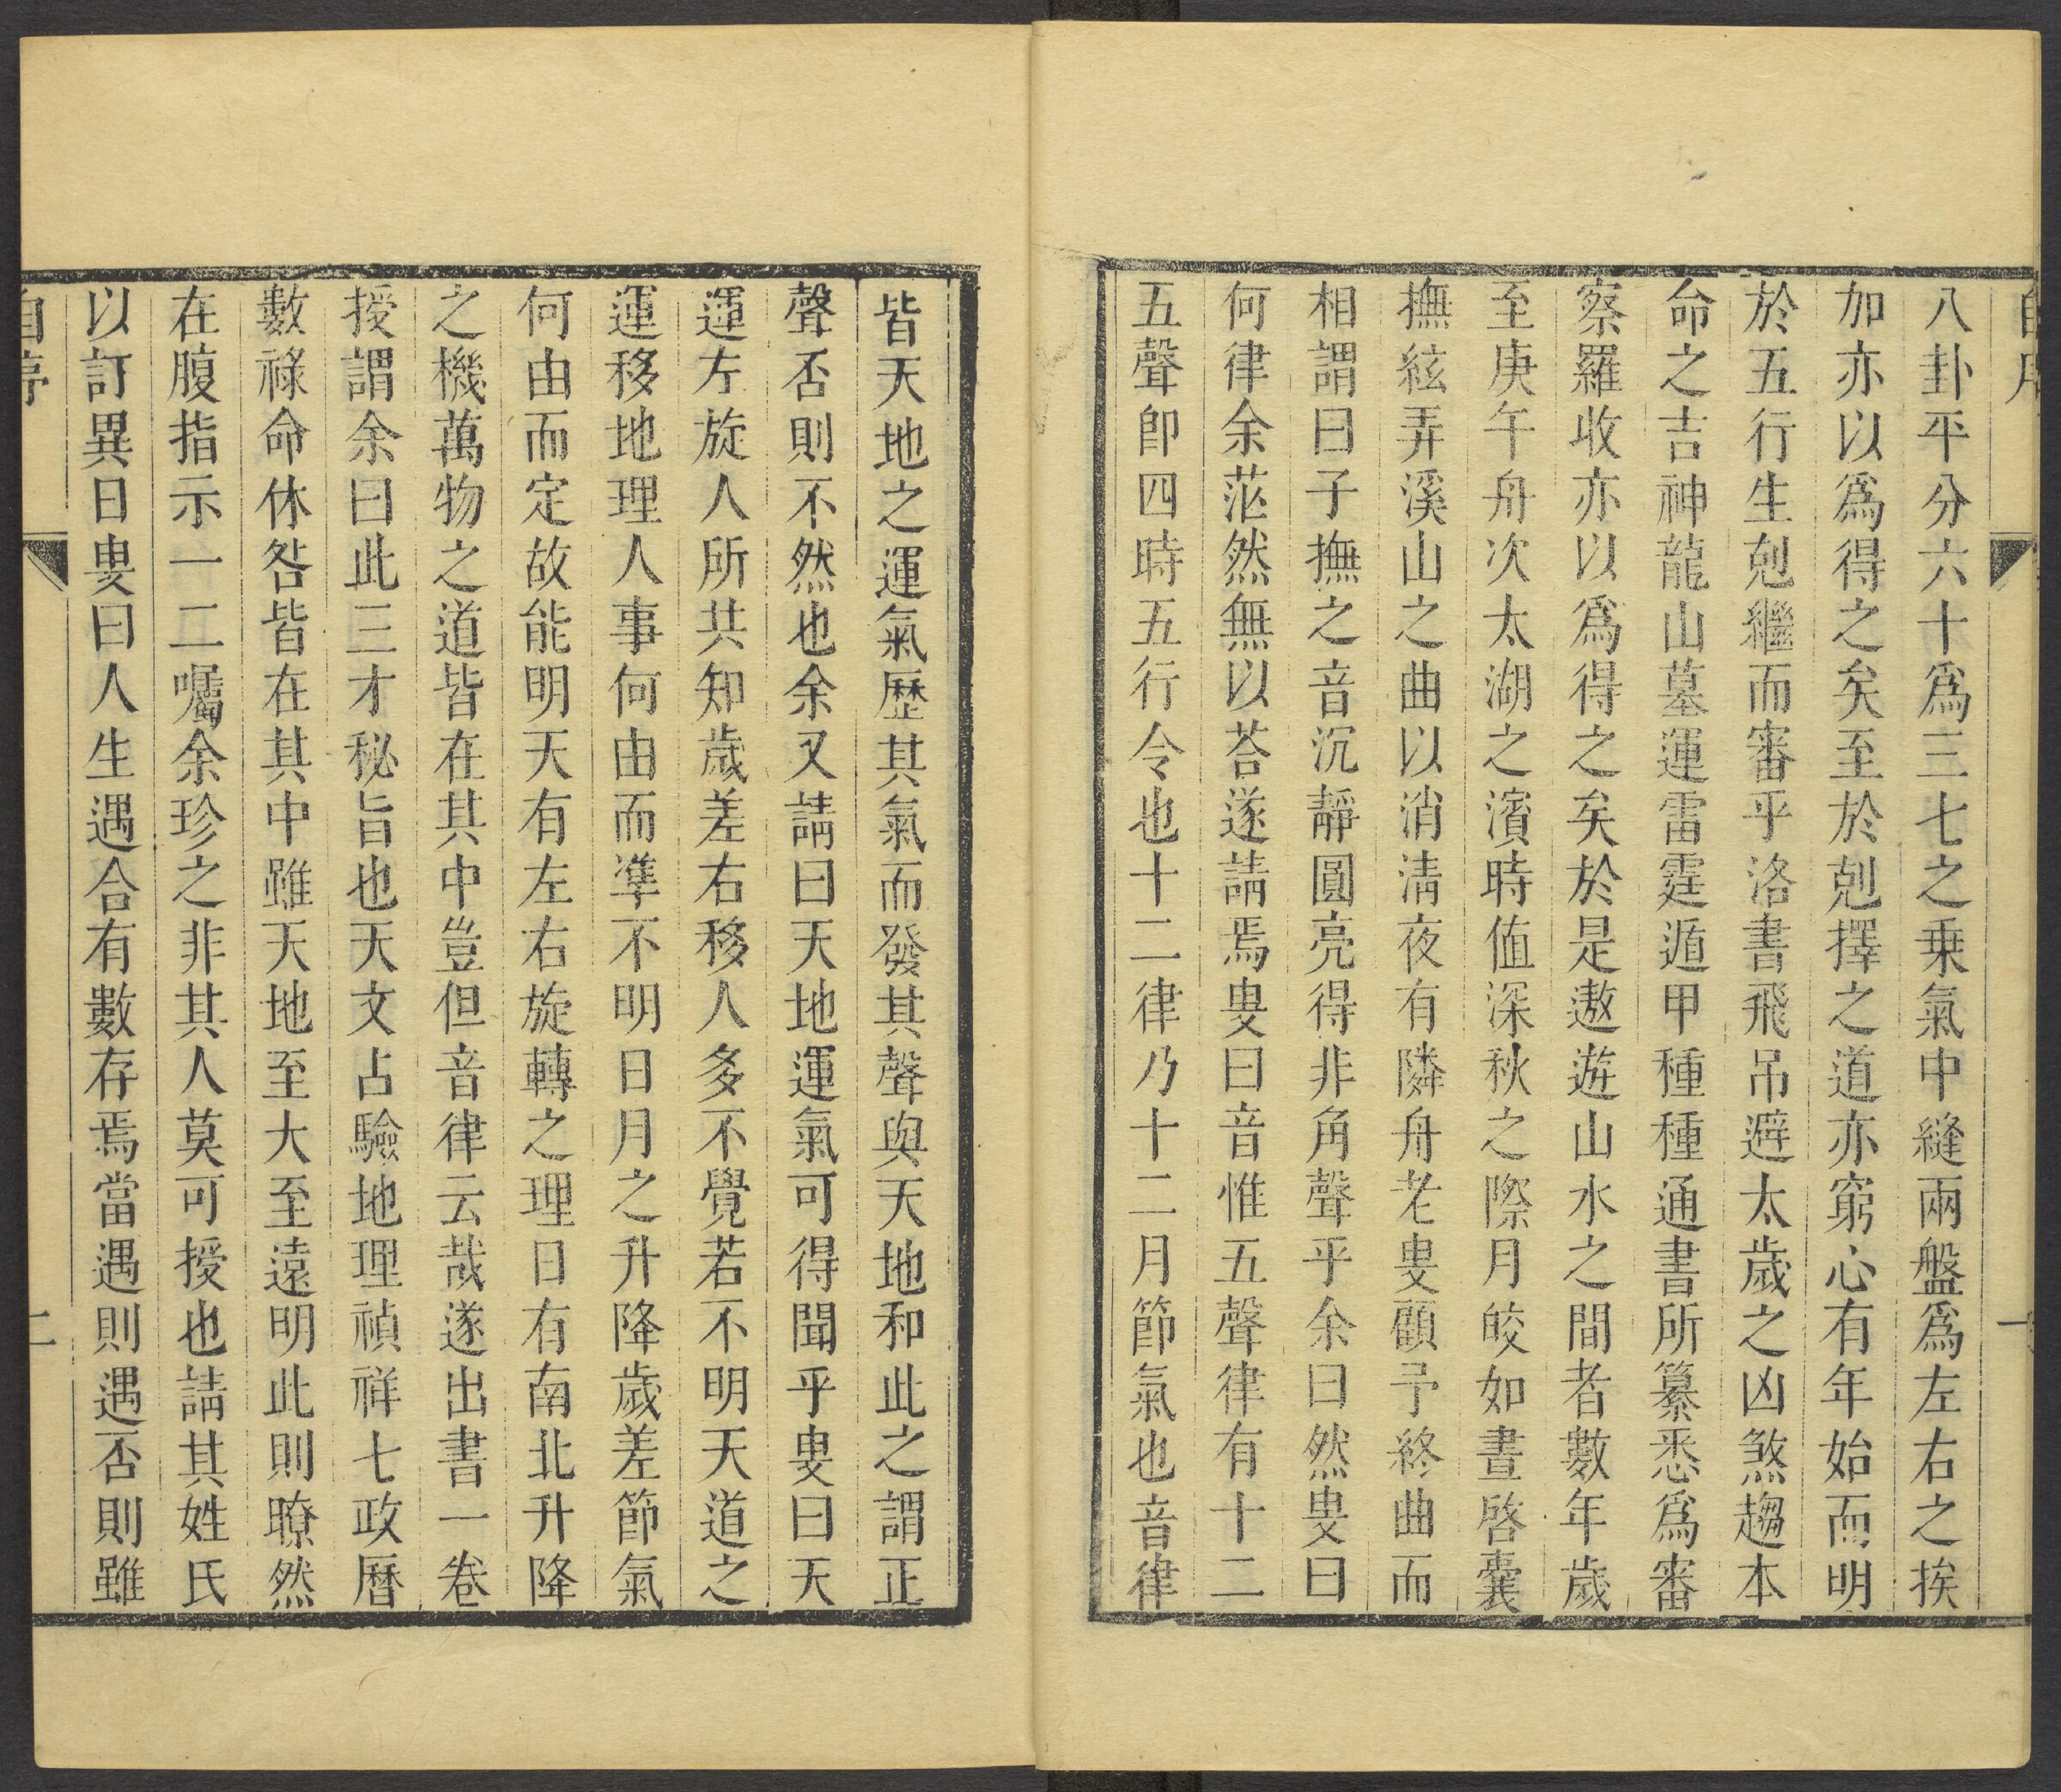 自序
一
八卦平分六十爲三七之乗氣中縫兩盤爲左右之挨
加亦以爲得之矣至於剋擇之道亦窮心有年始而明
於五行生剋繼而審乎洛書飛吊避太歲之凶煞趨本
命之吉神龍山墓運雷霆遁甲種種通書所纂悉爲審
察羅收亦以爲得之矣於是遨遊山水之間者數年歲
至庚午舟次太湖之濱時值深秋之際月皎如晝啓囊
撫絃弄溪山之曲以消淸夜有隣舟老叟顧予終曲而
相謂曰子撫之音沉靜圓亮得非角聲乎余曰然叟曰
何律余茫然無以荅遂請焉叟曰音惟五聲律有十二
五聲卽四時五行令也十二律乃十二月節氣也音律
皆天地之運氣歷其氣而發其聲與天地和此之謂正
聲否則不然也余又請曰天地運氣可得聞乎叟曰天
運左旋人所共知歲差右移人多不覺若不明天道之
運移地理人事何由而準不明日月之升降歲差節氣
何由而定故能明天有左右旋轉之理日有南北升降
之機萬物之道皆在其中豈但音律云哉遂出書一卷
授謂余曰此三才秘旨也天文占驗地理禎祥七政曆
數祿命休咎皆在其中雖天地至大至遠明此則瞭然
在腹指示一二囑余珍之非其人莫可授也請其姓氏
以訂異日叟曰人生遇合有數存焉當遇則遇否則雖
自序
二